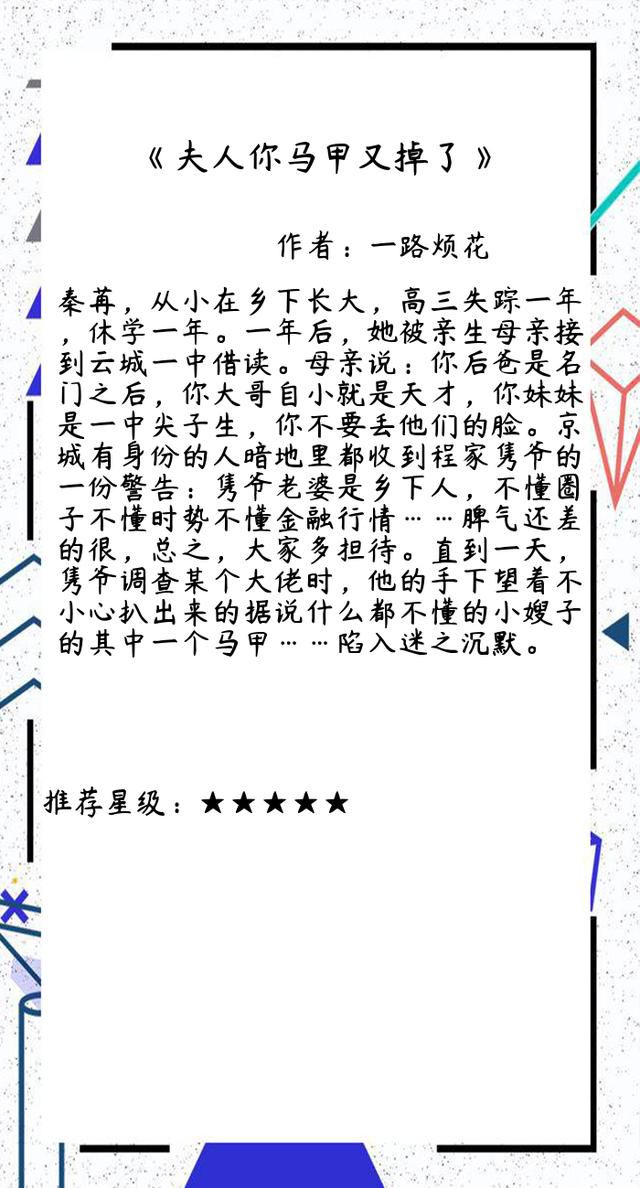 《夫人你马甲又掉了》
作者：一路烦花
秦苒，从小在乡下长大，高三失踪一年
，休学一年。一年后，她被亲生母亲接
到云城一中借读。母亲说：你后爸是名
门之后，你大哥自小就是天才，你妹妹
是一中尖子生，你不要丢他们的脸。京
城有身份的人暗地里都收到程家隽爷的
一份警告：隽爷老婆是乡下人，不懂圈
子不懂时势不懂金融行情……脾气还差
的很，总之，大家多担待。直到一天，
隽爷调查某个大佬时，他的手下望着不
小心扒出来的据说什么都不懂的小嫂子
的其中一个马甲……陷入迷之沉默。
推荐星级：★★★★★